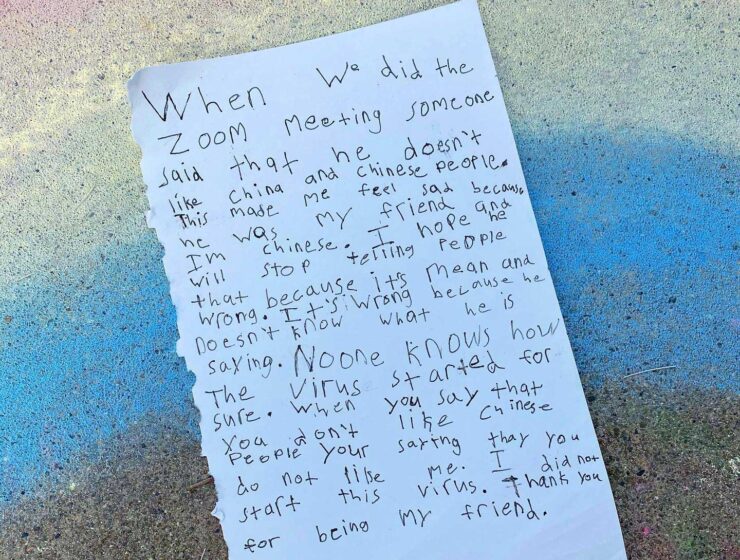 When We did the
Zoom meeting someone
said that he doesn't
like China and chinese people.
This made me feel sad because
he was my friend and
I'm chinese. I hope he
will stop telling people
that because it's mean and
wrong. It's wrong because he
doesn't know what he is
saying. No one knows how
The virus started for
sure. when you say that
you don't like Chinese
people your saying thay you
do not like me. I did not
start this virus. Thank you
for being my friend.